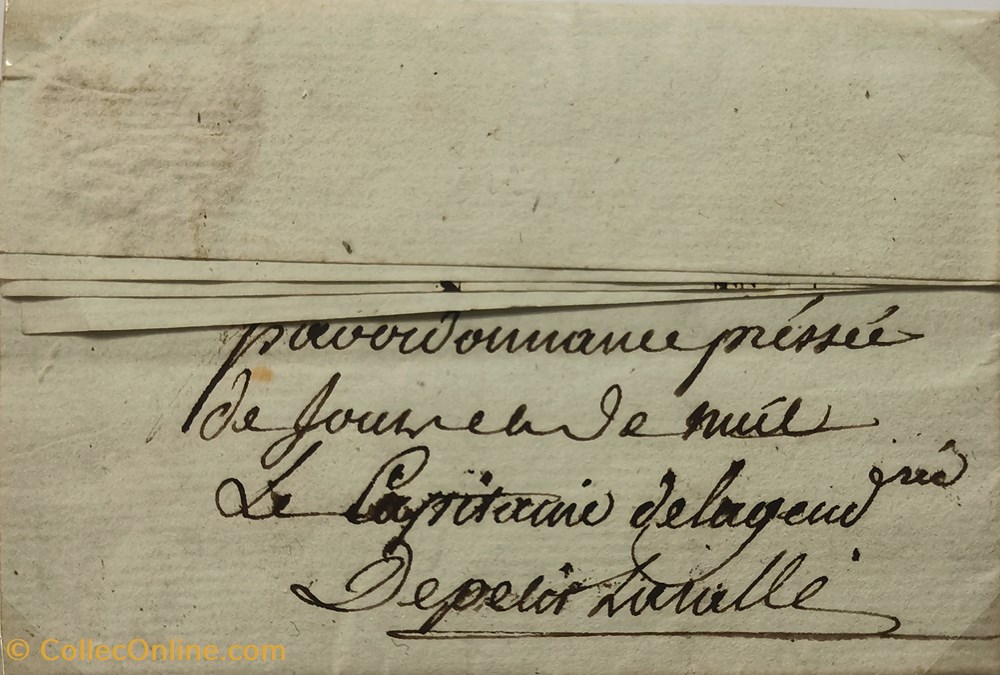 par ordonnance préssée
de Jour et de nuit
Le Capitaine de la gend rie
De
© CollecOnline.com